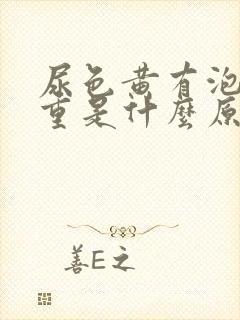 尿色黄有泡
重是什麼原
善E之